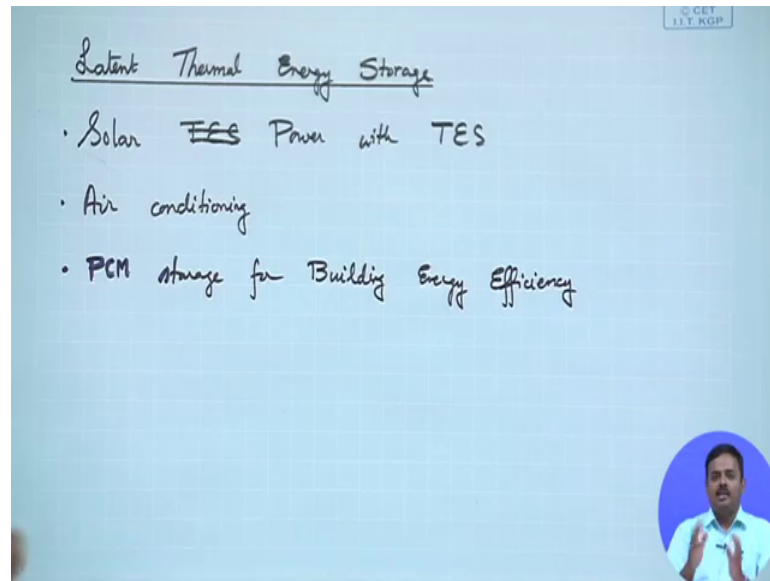 © CET
I.I.T. KGP
Latent Thermal Energy Storage
• Solar TES Power with TES
• Air conditioning
• PCM storage for Building Energy Efficiency